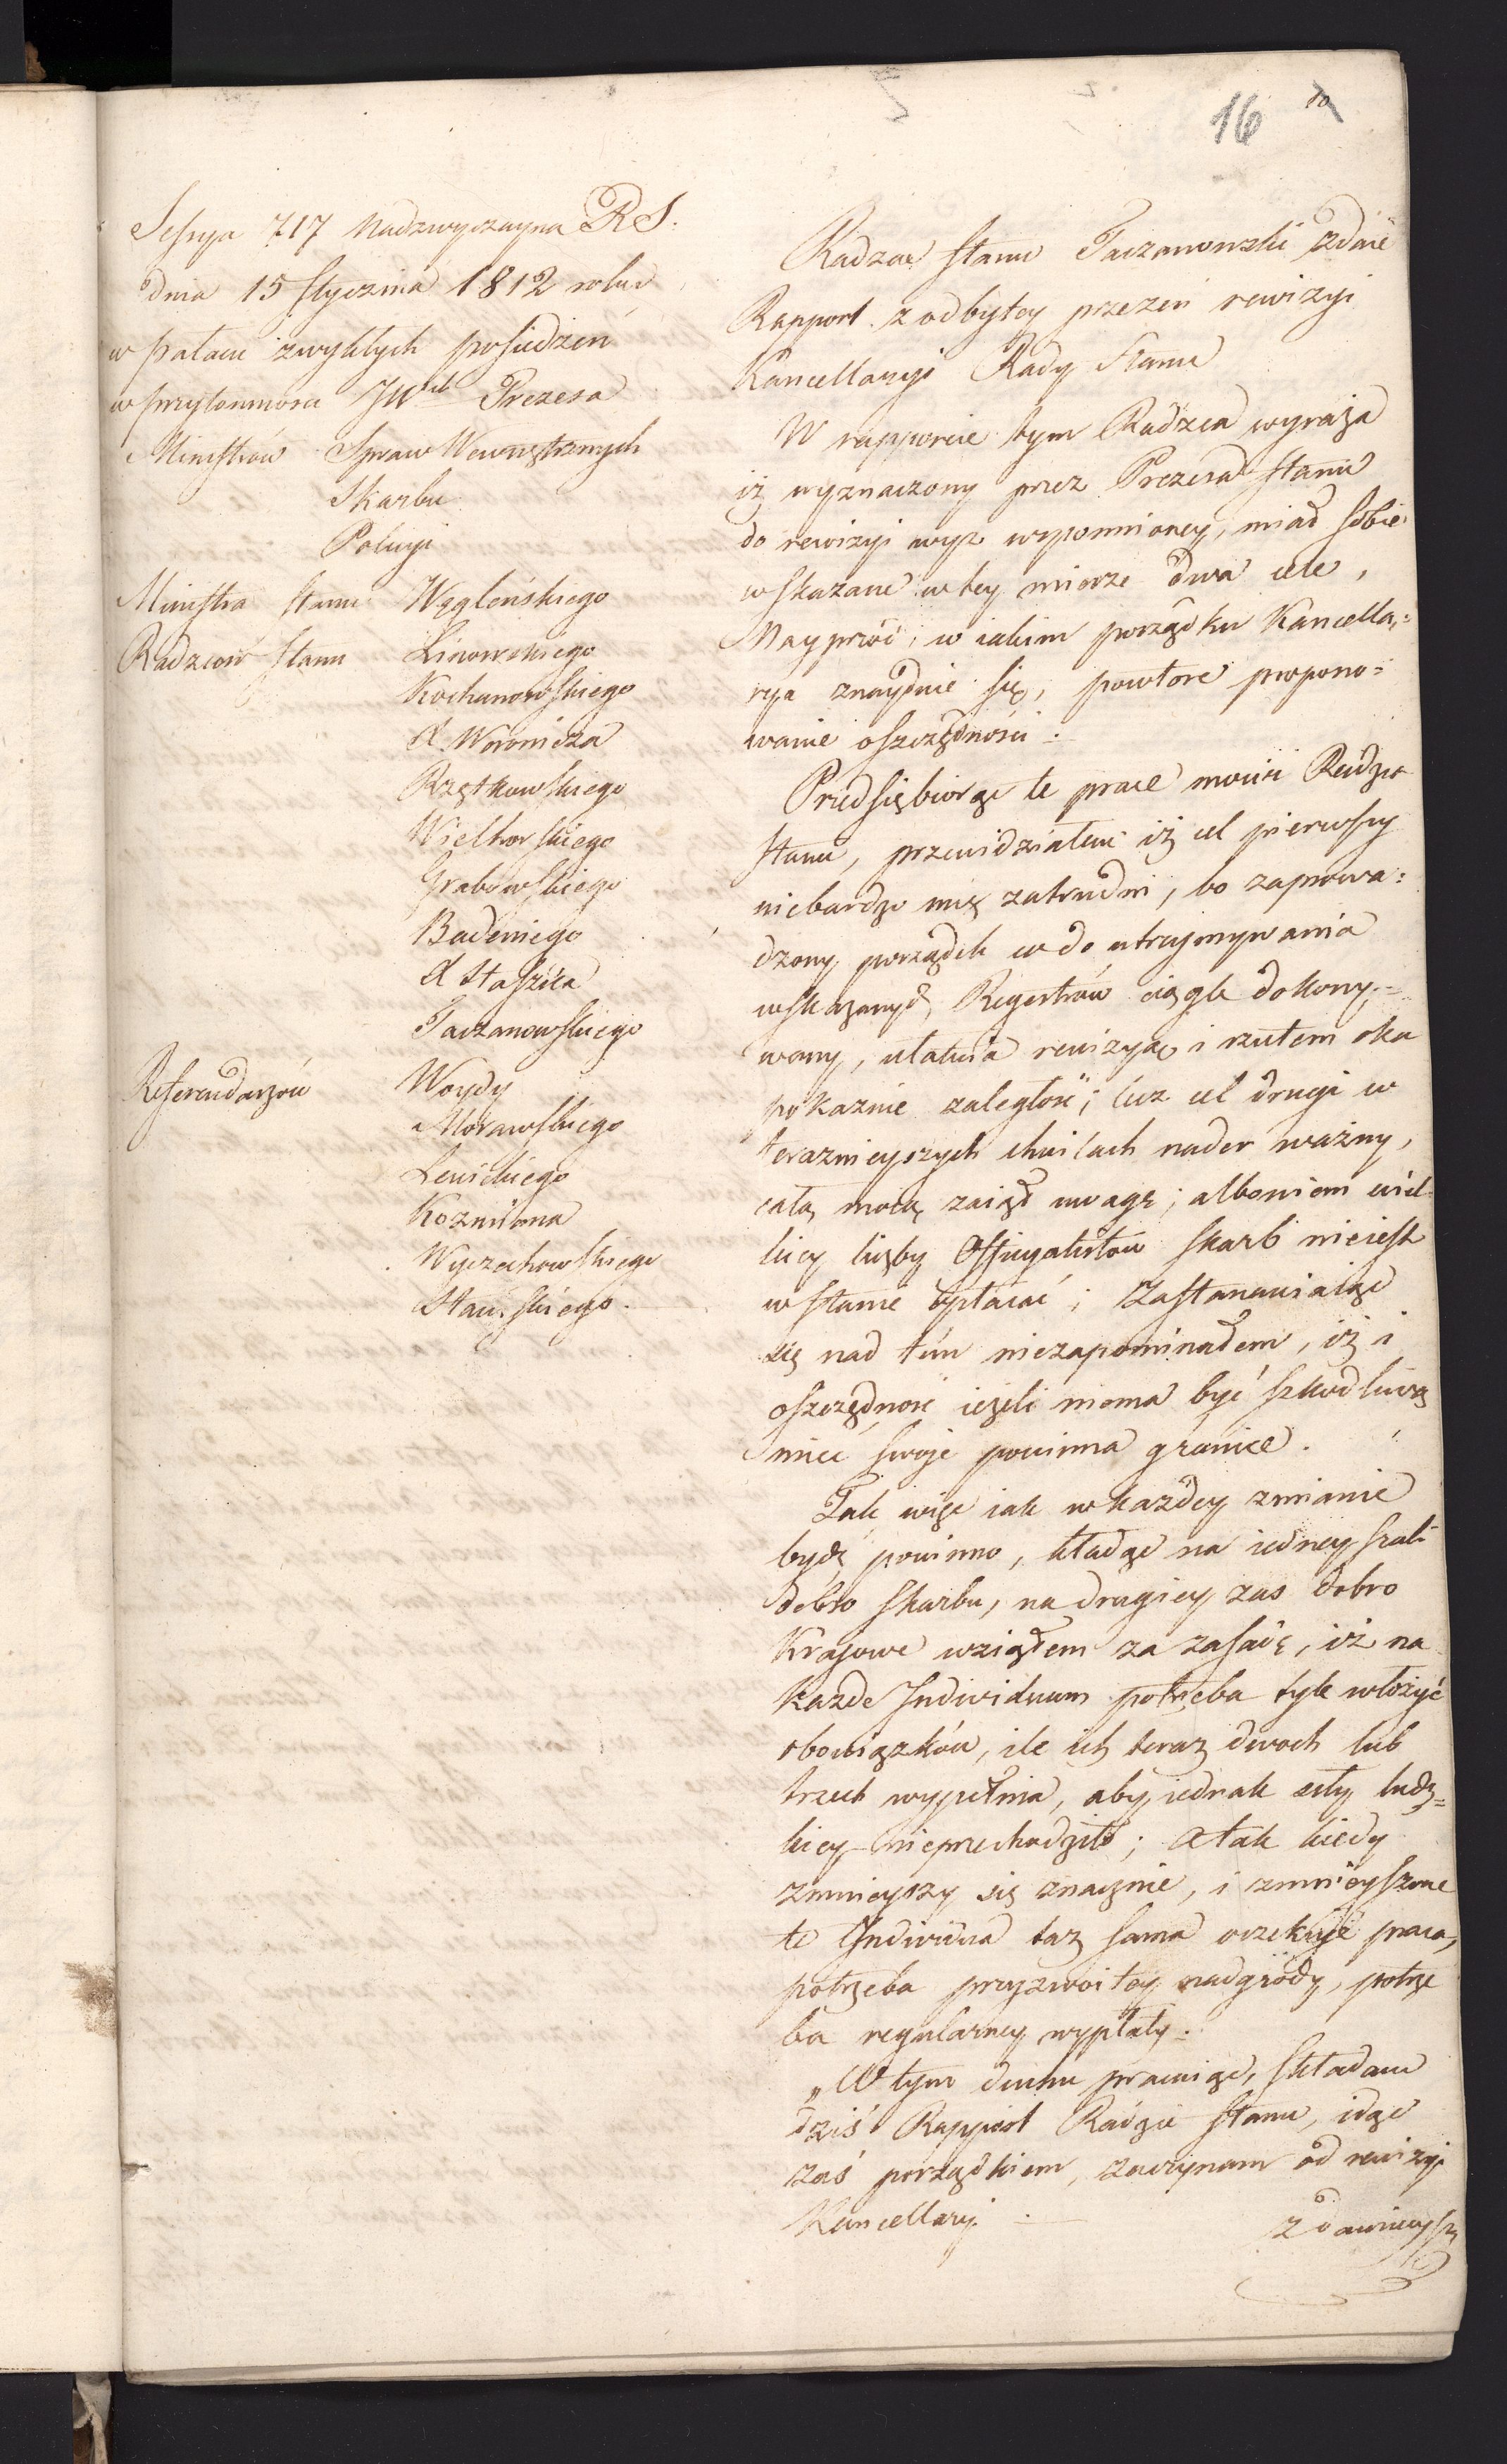 16 10
Sessya 717 Nadzwyczayna RS.
dnia 15 Stycznia 1812 roku
w pałacu zwykłych posiedzeń
w przytomności JW Prezesa
Ministrów Spraw Wewnętrznych
Skarbu
Policyi
Ministra Stanu Węgleńskiego
Radzców Stanu Linowskiego
Kochanowskiego
X Woronicza
Rzętkowskiego
Wielhorskiego
Grabowskiego
Badeniego
X Staszica
Taczanowskiego
Referendarzów Woydy
Morawskiego
Lewickiego
Kozmiana
Wyczechowskiego
Radzca Stanu Taczanowski zdaie
Rapport z odbytey przezeń rewizyi
Kancellaryi Rady Stanu
W rapporcie tym Radzca wyraża
iż wyznaczony przez Prezesa Stanu
do rewizyi wyz wspomnioney, miał sobie
wskazane w tey mierze dwa cele,
Nayprzód, w iakim porządku Kancella=
rya znayduie się, powtore propono=
wanie oszczędności.
Przedsiębiorąc te prace mówi Radzca
Stanu, przewidziałem iż cel pierwszy
niebardzo mię zatrudni, bo zaprowa=
dzony porządek w do utrzymywania
wskazanych Regestrów ciągle dokony=
wany, ułatwia rewizyą i rzutem oka
pokaznie zaległość; lecz cel drugi w
terazniejszych chwilach nader ważny,
całą moią zaiął uwagę; albowiem wiel
kiey liczby Officyalistow Skarb nieiest
w stanie opłacać; Zastanawiaiąc
się nad tém niezapominałem, iż i
oszczędność ieżeli niema być szkodliwą
mieć swoje powinna granice.
Tak więc iak w każdey zmianie
bydź powinno, kładąc na iedney szali
dobro skarbu, na drugiey zas dobro
Kraiowe wziąłem za zasadę, iż na
każde Individuum potrzeba tyle włożyć
obowiązków, ile ich teraz dwoch lub
trzech wypełnia, aby iednak siły ludz=
kiey nieprzechodziło; A tak kiedy
zmnieyszy się znacznie, i zmnieyszone
te Individua taż sama oczekuje praca,
potrzeba przyzwoitey nadgrody, potrze
ba regularney wypłaty.
„W tym duchu pracuiąc, składam
dziś Rapport Radzie Stanu, idąc
zaś porządkiem, zaczynam od rewizyi
Kancellaryi.